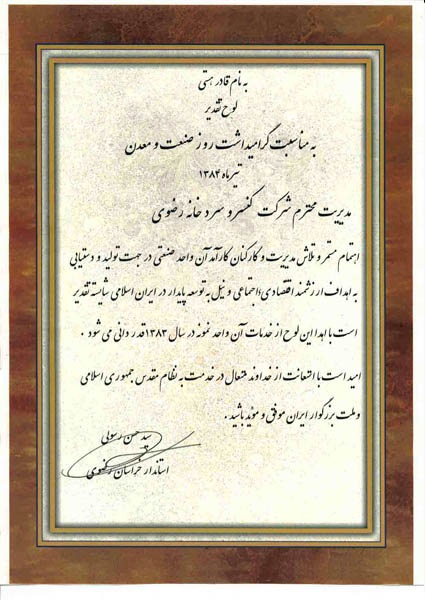 به نام قادر هستی
لوح تقدیر
به مناسبت گرامیداشت روز صنعت و معدن
تیرماه ۱۳۸۴
مدیریت محترم شرکت کنسرو سردخانه رضوی
اهتمام مستمر و تلاش مدیریت و کارکنان کارآمد آن واحد صنعتی در جهت تولید و دستیابی
به اهداف ارزشمند اقتصادی، اجتماعی و نیل به توسعه پایدار در ایران اسلامی شایسته تقدیر
است با اهدا این لوح از خدمات آن واحد نمونه در سال ۱۳۸۳ قدردانی می شود .
امید است با استعانت از خداوند متعال در خدمت به نظام مقدس جمهوری اسلامی
و ملت بزرگوار ایران موفق و موید باشید .
سید حسن رسولی
استاندار خراسان رضوی